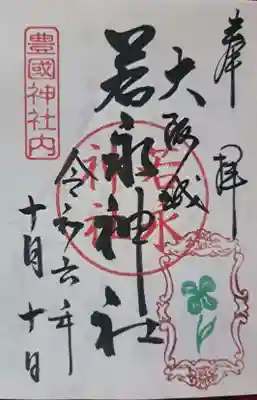 奉拝
大阪城
若永神社
令和六年
十月十日
豊國神社内
若永
神社